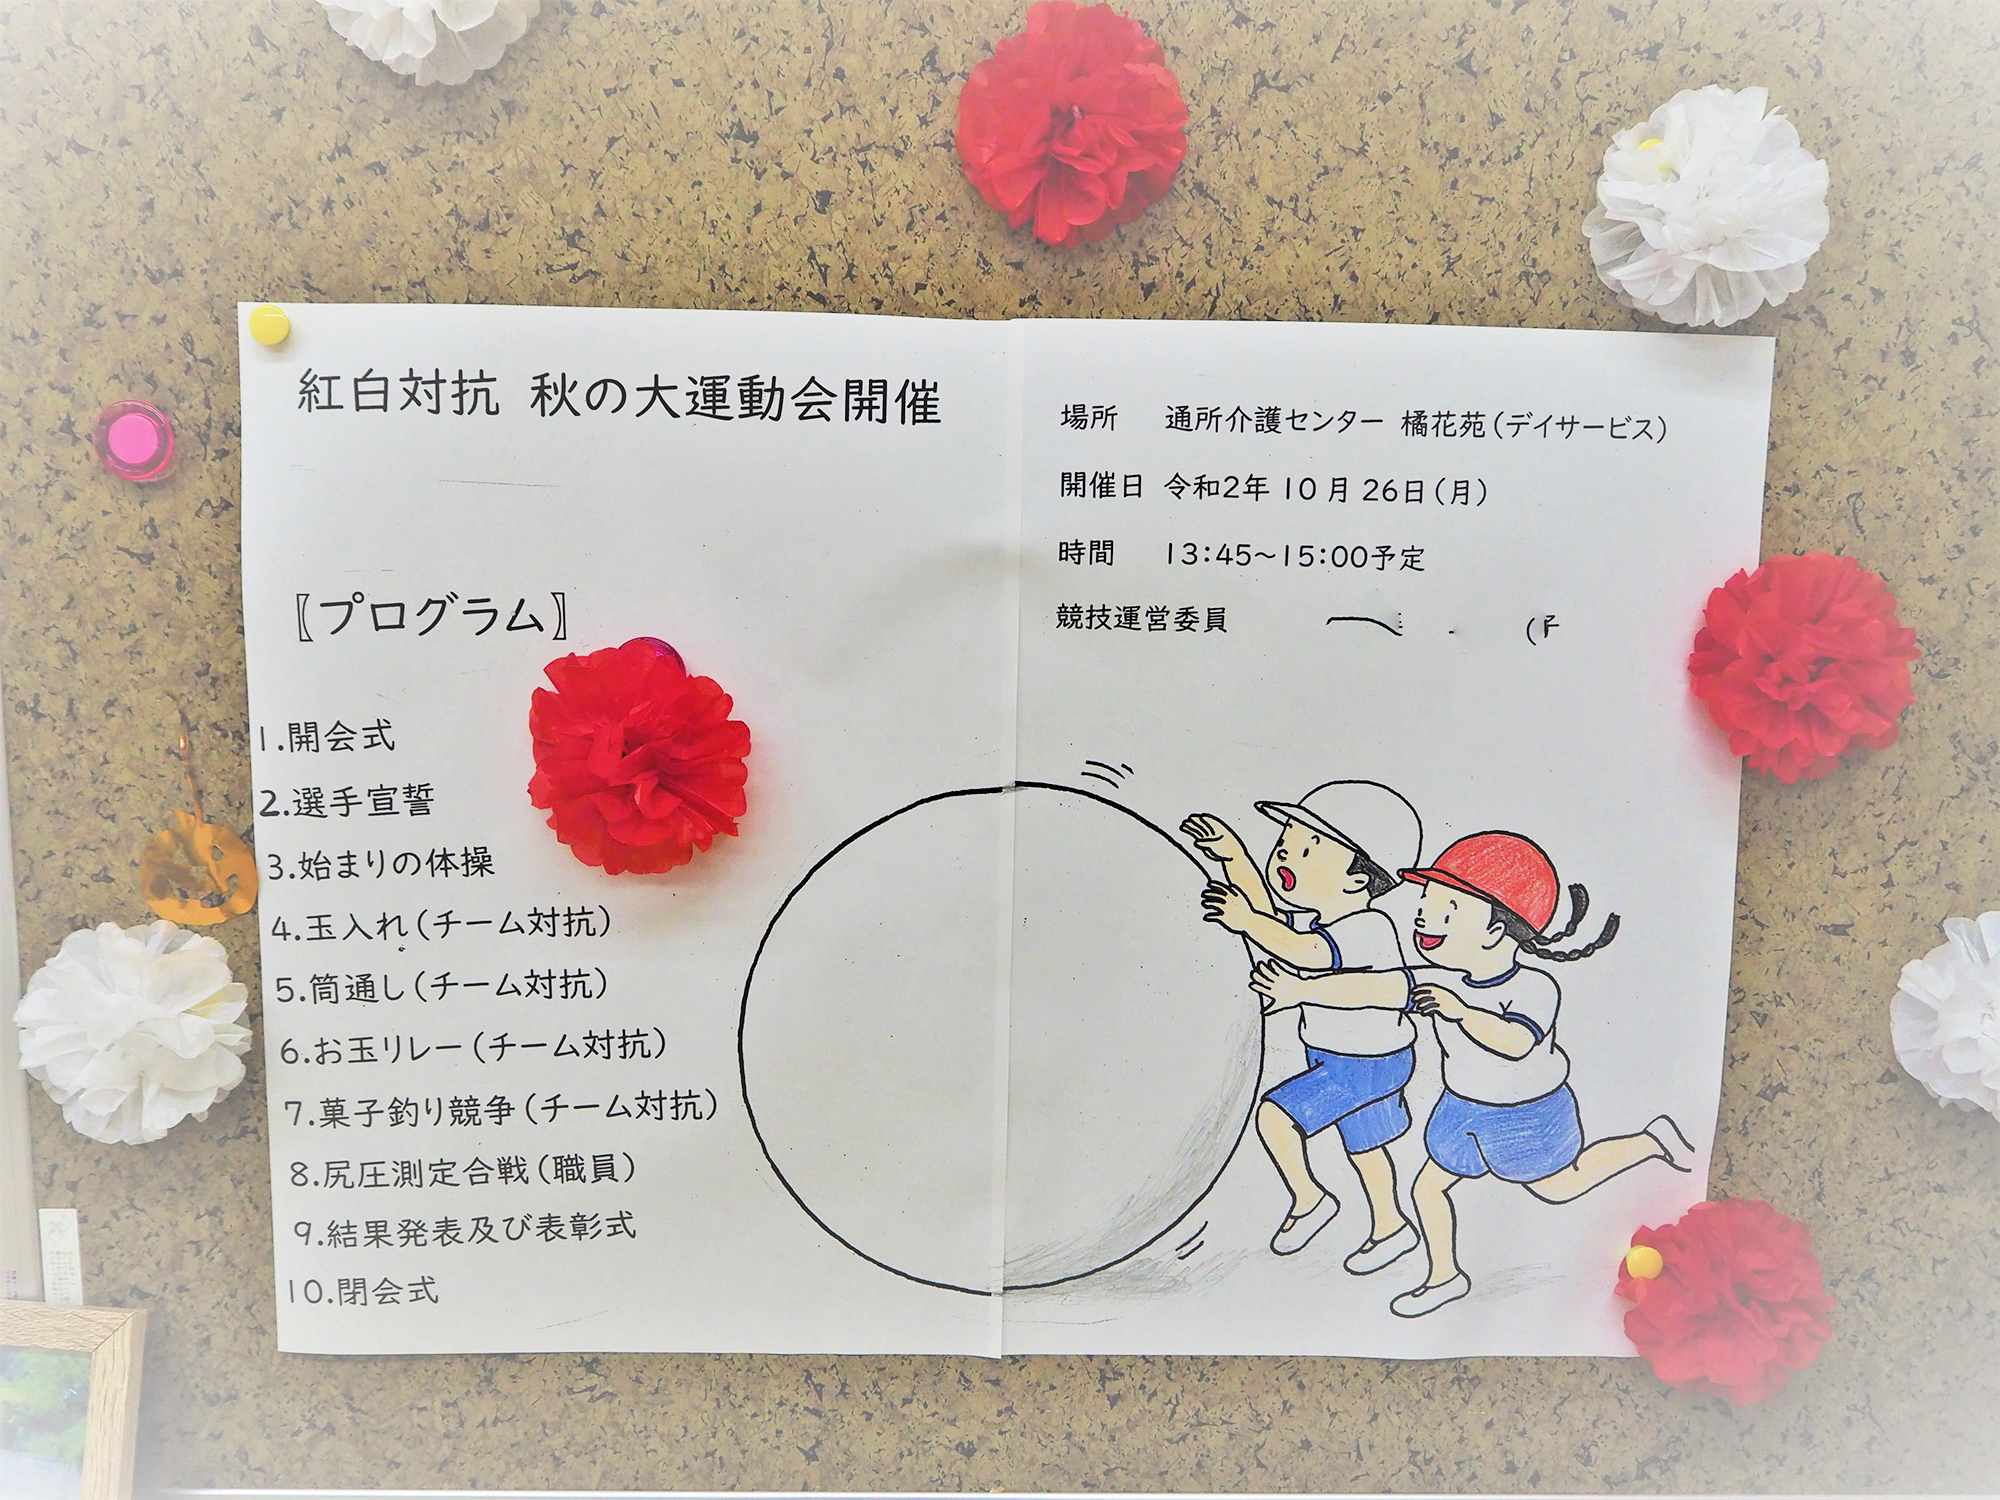 紅白対抗 秋の大運動会開催
〖プログラム〗
1.開会式
2.選手宣誓
3.始まりの体操
4.玉入れ(チーム対抗)
5.筒通し(チーム対抗)
6.お玉リレー(チーム対抗)
7.菓子釣り競争(チーム対抗)
8.尻圧測定合戦(職員)
9.結果発表及び表彰式
10.閉会式
場所 通所介護センター 橘花苑(デイサービス)
開催日 令和2年10月26日(月)
時間 13:45~15:00予定
競技運営委員